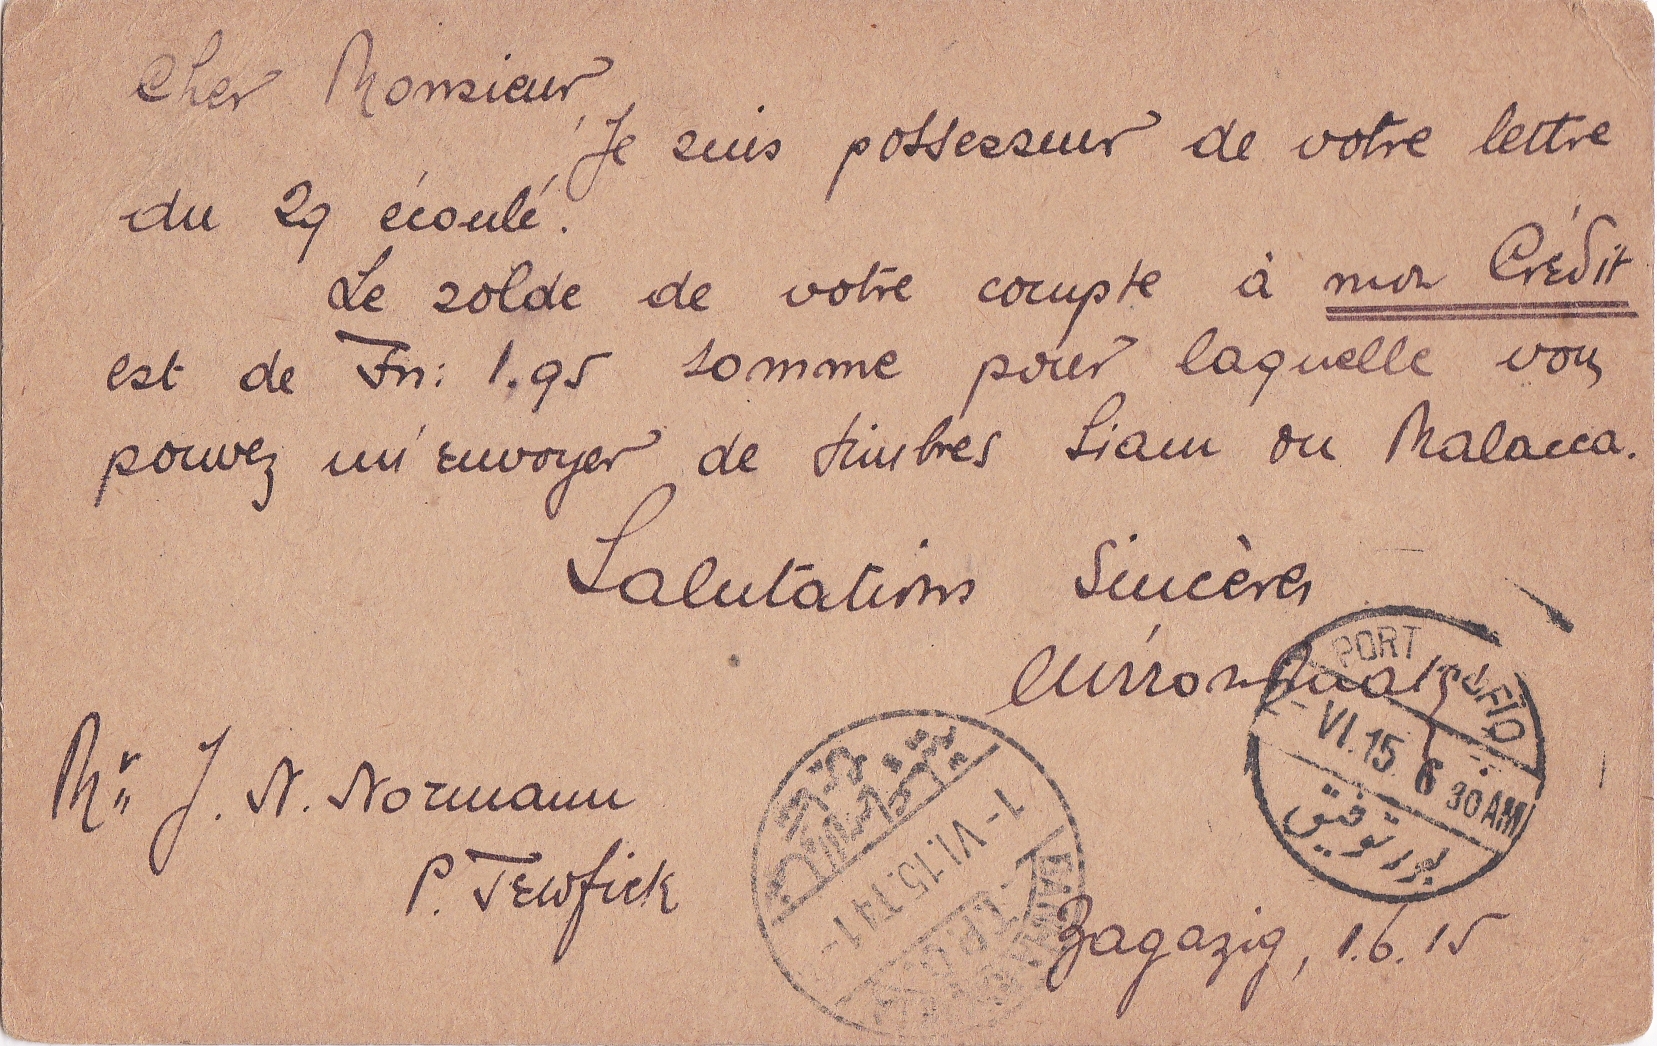 Cher Monsieur,
Je suis possesseur de votre lettre
du 29 écoulé.
Le solde de votre compte à mon Crédit
est de Frs: 1.95 somme pour laquelle vous
pouvez m'envoyer de timbres Siam ou Malacca.
Salutations Sincères
PORT TEWFIQ
- VI. 15 6 30 AM
بورتوفيق
Mr J. N. Normann
P. Tewfick
1 - VI. 15. T41 -
Zagazig, 1.6.15